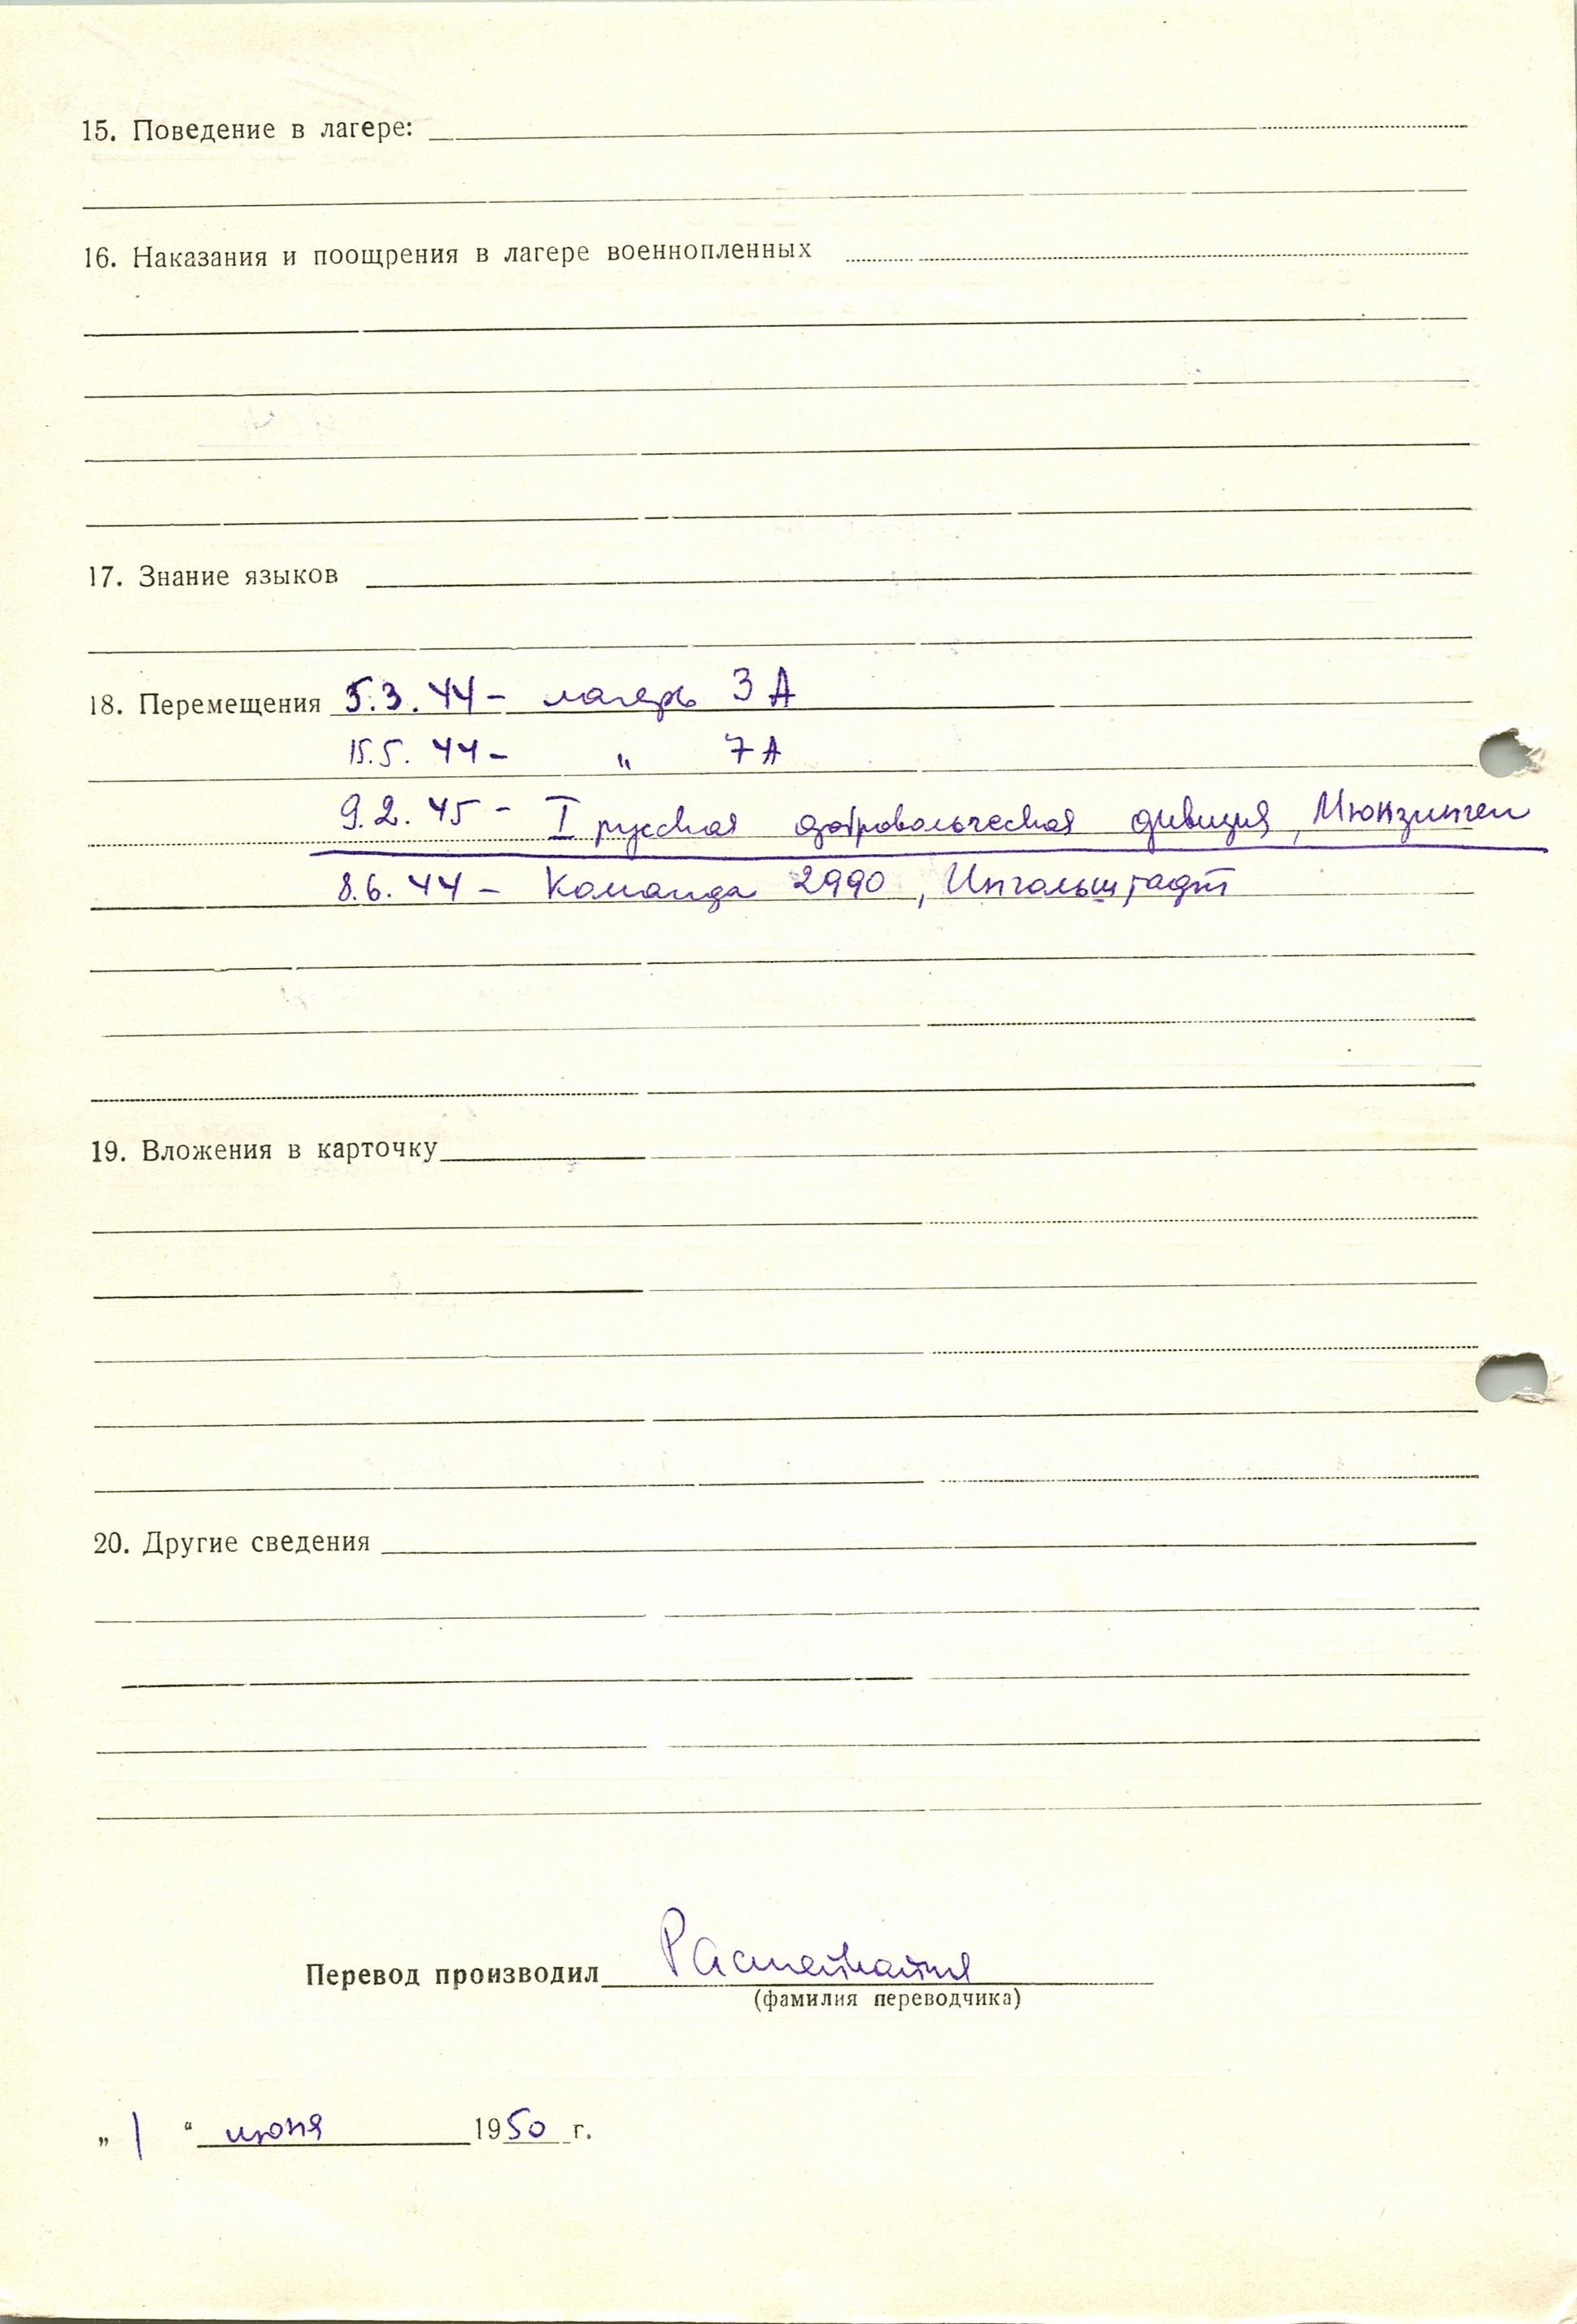 15. Поведение в лагере:
16. Наказания и поощрения в лагере военнопленных
17. Знание языков
18. Перемещения 5.3.44 – лагерь 3 А
15.5. 44 – " 7 А
9.2. 45 – I русская добровольческая дивизия, Мюнзинген
8.6. 44 – Команда 2990, Ингольштадт
19. Вложения в карточку
20. Другие сведения
Перевод производил
(фамилия переводчика)
„ 1 “ июня 1950 г.